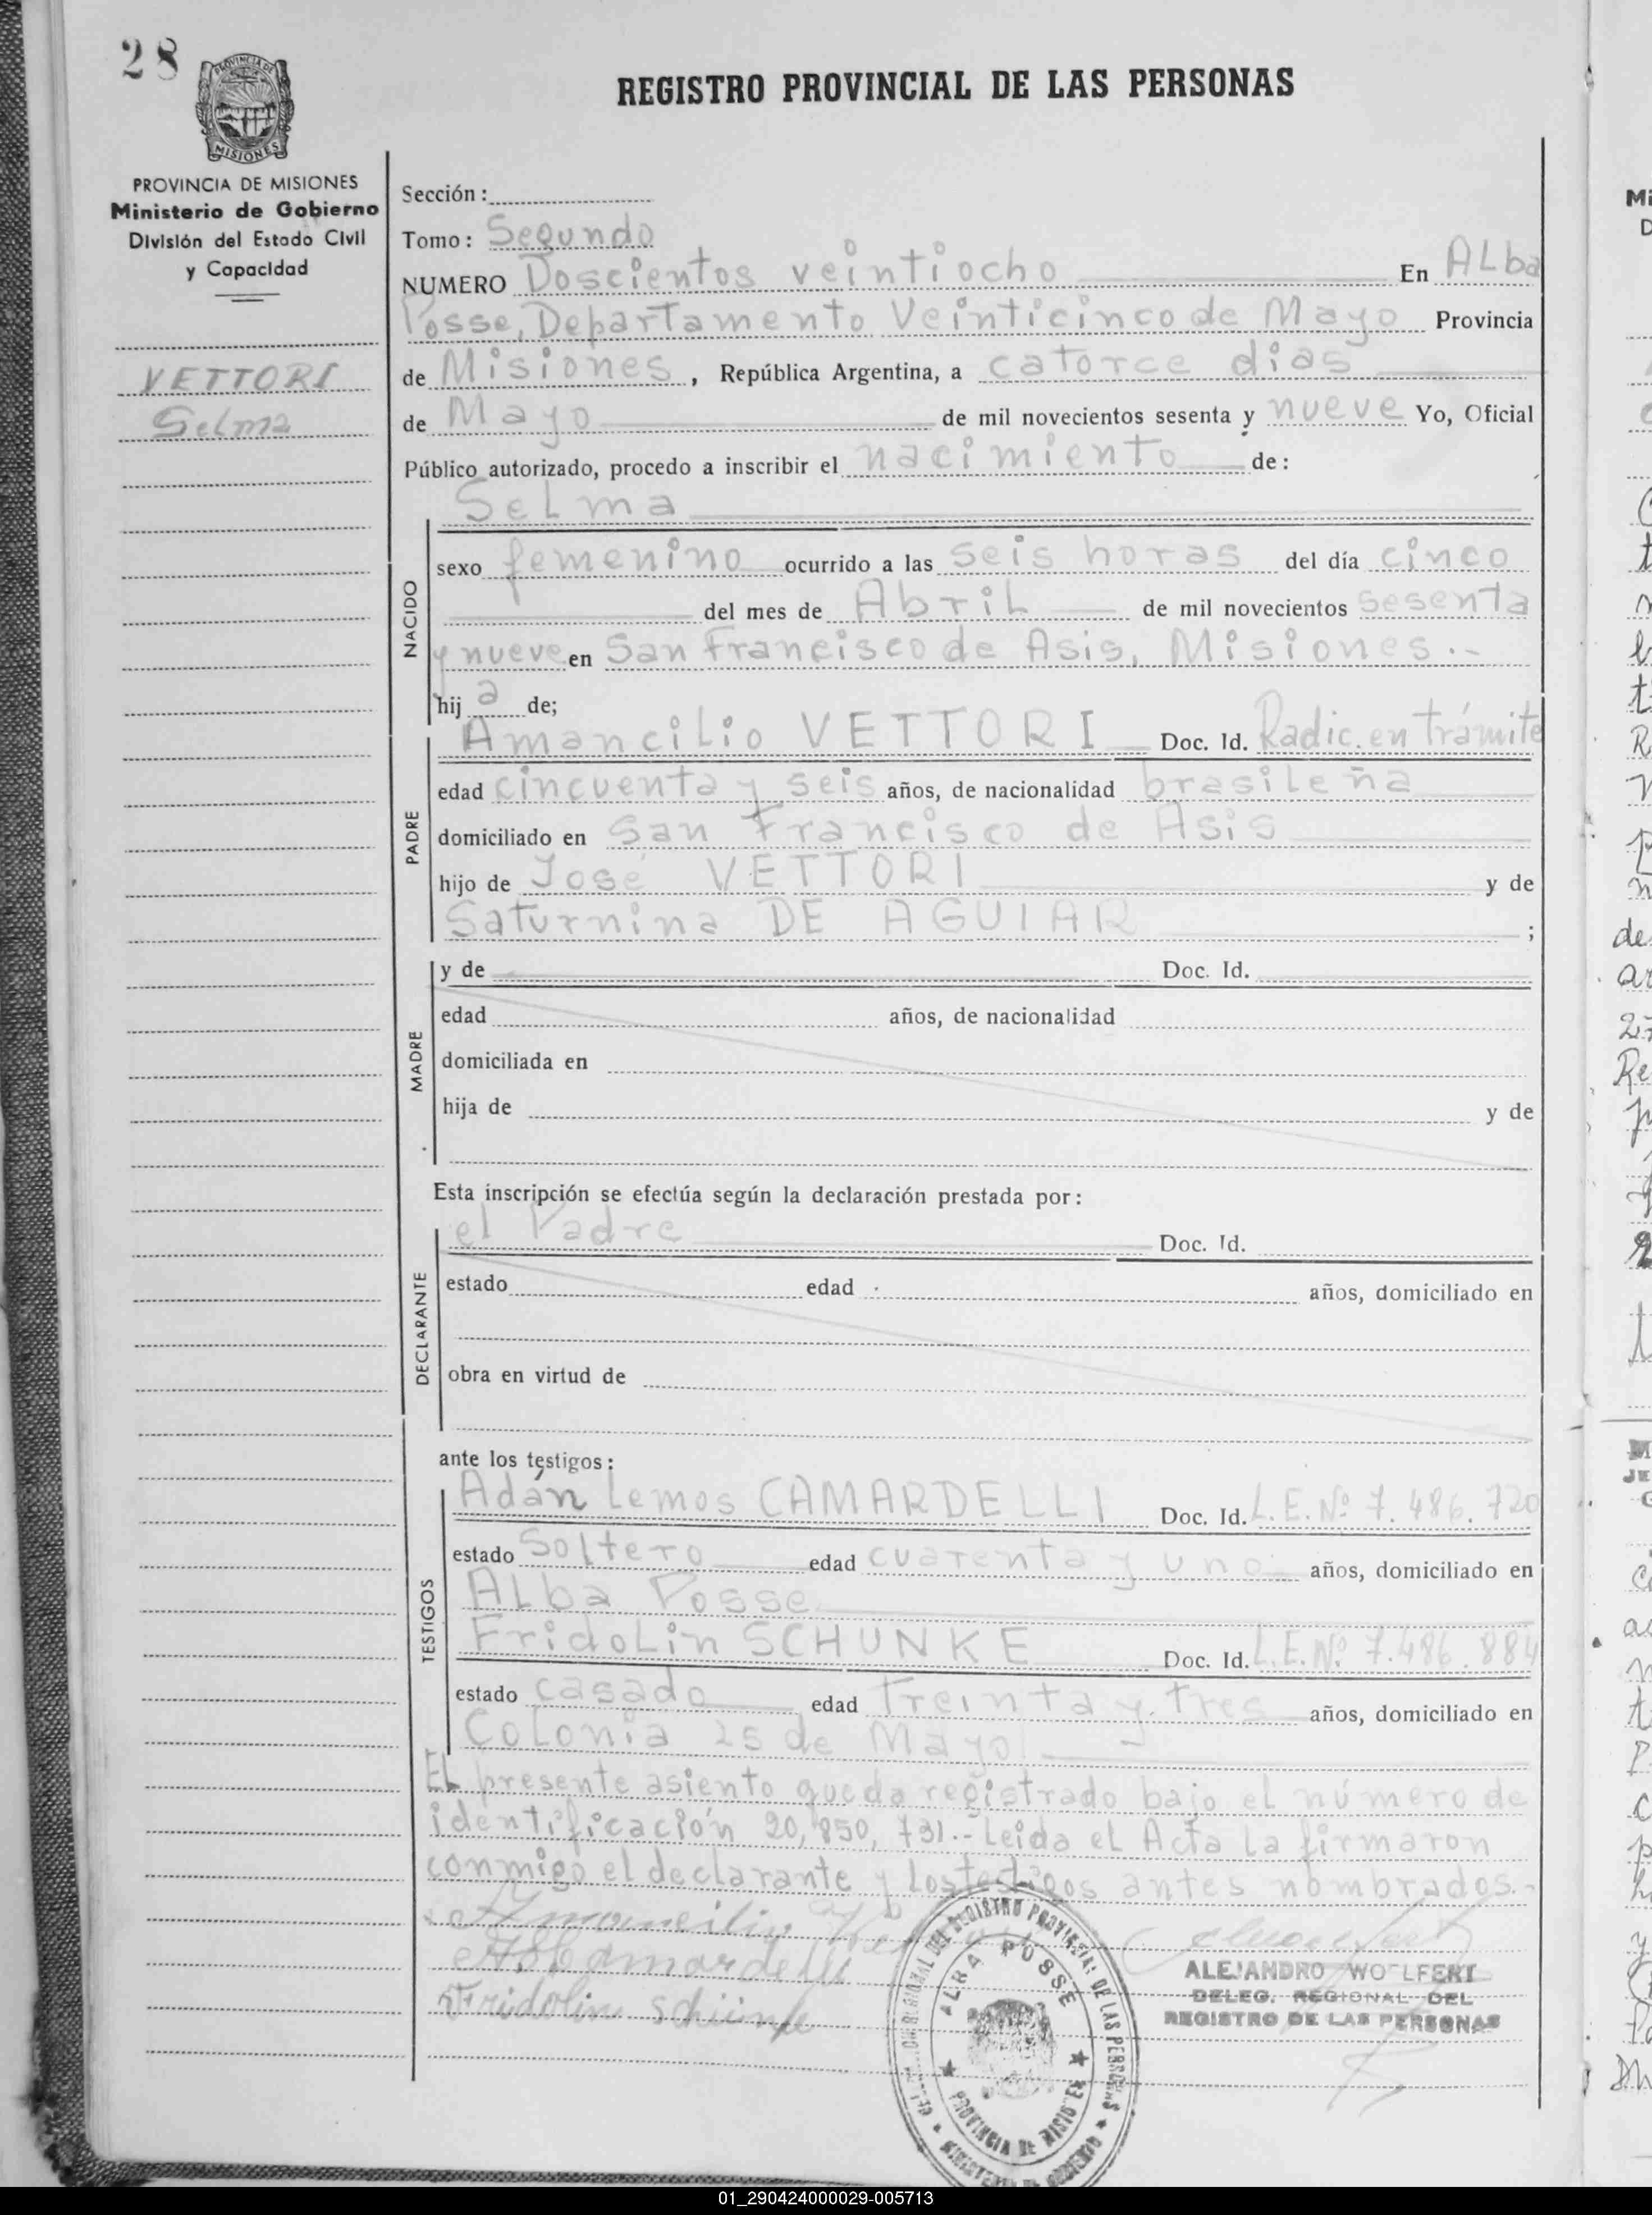 28
REGISTRO PROVINCIAL DE LAS PERSONAS
MISIONES
PROVINCIA DE MISIONES
Ministerio de Gobierno
División del Estado Civil
y Capacidad
VETTORI
Selma
Sección:
Tomo: Segundo
NUMERO Doscientos veintiocho En ALba
Posse, Departamento Veinticinco de Mayo Provincia
de Misiones, República Argentina, a catorce dias
de Mayo de mil novecientos sesenta y nueve Yo, Oficial
Público autorizado, procedo a inscribir el nacimiento de:
SeLma
NACIDO
sexo femenino ocurrido a las seis horas del día cinco
del mes de AbriL de mil novecientos sesenta
y nueve en San Francisco de Asis, Misiones.-
hij a de;
PADRE
AmanciLio VETTORI Doc. Id. Radic. en trámite
edad cincuenta y seis años, de nacionalidad brasiLeña
domiciliado en San Francisco de Asis
hijo de José VETTORI y de
Saturnina DE AGUIAR ;
MADRE
y de Doc. Id.
edad años, de nacionalidad
domiciliada en
hija de y de
Esta inscripción se efectúa según la declaración prestada por:
DECLARANTE
el Padre Doc. Id.
estado edad años, domiciliado en
obra en virtud de
ante los testigos:
TESTIGOS
Adán Lemos CAMARDELLI Doc. Id. L.E.Nº 7.486.720
estado Soltero edad cuarenta y uno años, domiciliado en
ALba Posse
FridoLin SCHUNKE Doc. Id. L.E.Nº 7.486.884
estado casado edad Treinta y Tres años, domiciliado en
CoLonia 25 de Mayo
EL presente asiento queda registrado bajo el número de
identificación 20,850,731.- Leida eL Acta La firmaron
conmigo el declarante y los testigos antes nombrados.-
Amancilio
Camardelli
Fridolin Schünke
ALBA POSSE
PROVINCIA DE MISIONES
ALEJANDRO WOLFERT
DELEG. REGIONAL DEL
REGISTRO DE LAS PERSONAS
01_290424000029-005713